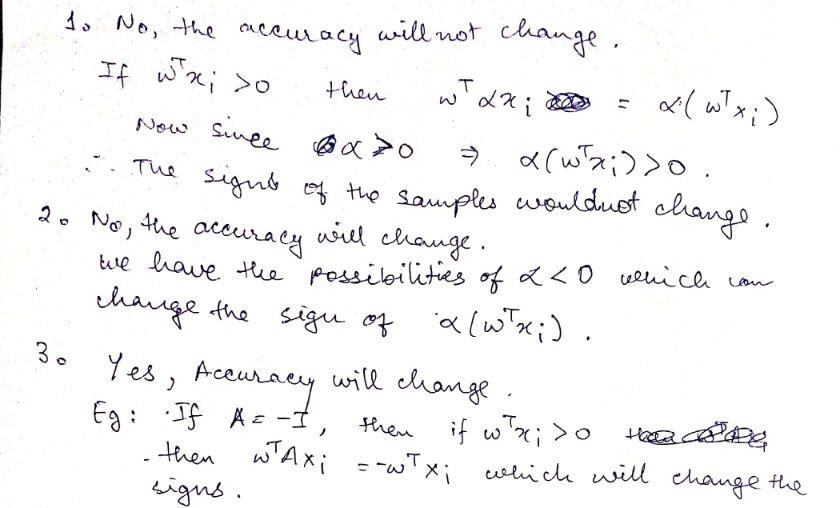 1. No, the accuracy will not change.
If wᵀxᵢ >0 then wᵀαxᵢ = α(wᵀxᵢ)
Now since α>0 ⇒ α(wᵀxᵢ)>0.
∴ The signs of the samples wouldnot change.
2. No, the accuracy will change.
we have the possibilities of α<0 which can
change the sign of α(wᵀxᵢ).
3. Yes, Accuracy will change.
Eg: If A = -I, then if wᵀxᵢ >0
then wᵀAxᵢ = -wᵀxᵢ which will change the
signs.